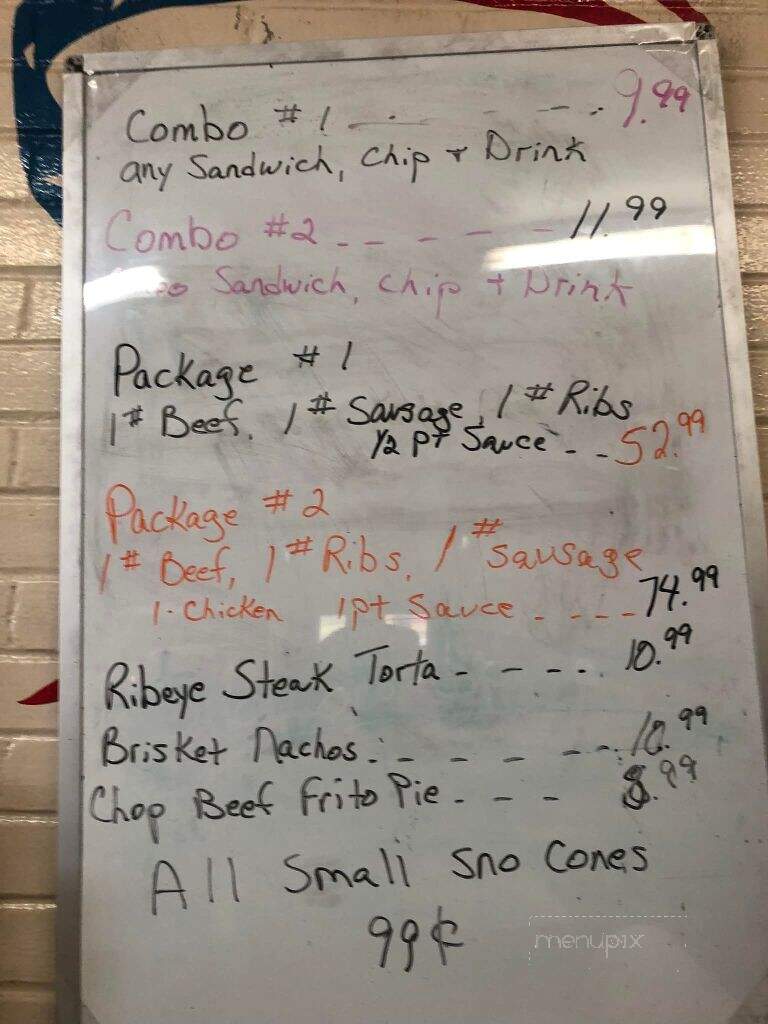 Combo #1 - - - - . 9.99
any Sandwich, Chip + Drink
Combo #2 - - - - - 11.99
Sandwich, Chip + Drink
Package #1
1# Beef, 1# Sausage, 1# Ribs
1/2 pt Sauce - - 52.99
Package #2
1# Beef, 1# Ribs, 1# Sausage
1 - Chicken 1pt Sauce - - - - 74.99
Ribeye Steak Torta - - - - . 10.99
Brisket Nachos. - - - - - - . 10.99
Chop Beef Frito Pie - - - 8.99
All Small Sno Cones
99¢
menupix